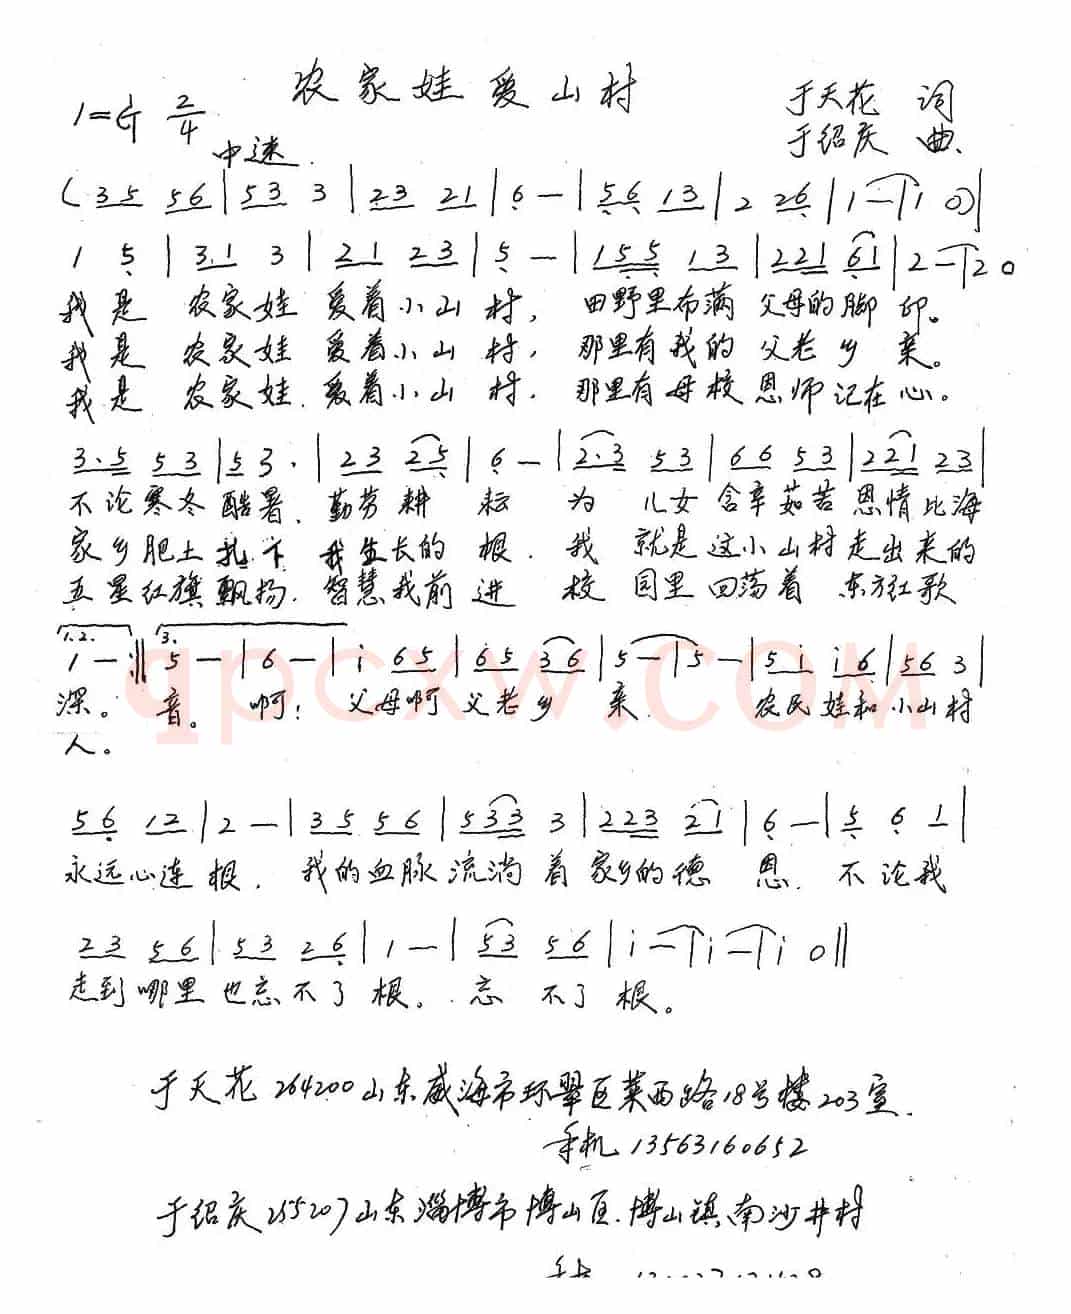 农家娃爱山村
1=G 2/4
于天花 词
于绍庆 曲
中速
(35 56|53 3|23 21|6—|56 13|2 26|1—|1 0)|
1 5|3.1 3|21 23|5—|155 13|221 61|2—|2 0
我是 农家娃 爱着小山 村, 田野里布满 父母的脚 印。
我是 农家娃 爱着小山 村, 那里有我的 父老乡 亲。
我是 农家娃 爱着小山 村, 那里有母校 恩师记在 心。
3.5 53|53.|23 25|6—|2.3 53|66 53|221 23|
不论寒冬 酷暑、勤劳耕 耘 为 儿女 含辛茹苦 恩情比海
家乡肥土 扎下 我生长的 根. 我 就是这小山村走出来的
五星红旗飘扬. 智慧我前进 校 园里回荡着 东方红歌
1.2. 3.
1—:‖5—|6—|i 65|65 36|5—|5—|5i i6|56 3|
深。 音。 啊! 父母啊 父老乡 亲 农民娃和小山村
人。
qpcxw.com
56 12|2—|35 56|533 3|223 21|6—|5 6 1|
永远心连 根. 我的血脉 流淌 着 家乡的德 恩. 不论我
23 56|53 26|1—|53 56|i—|i—|i 0‖
走到哪里 也忘不了 根。 忘 不了 根。
于天花 264200 山东威海市环翠区莱西路18号楼203室.
手机 13563160652
于绍庆 255207 山东淄博市博山区.博山镇南沙井村